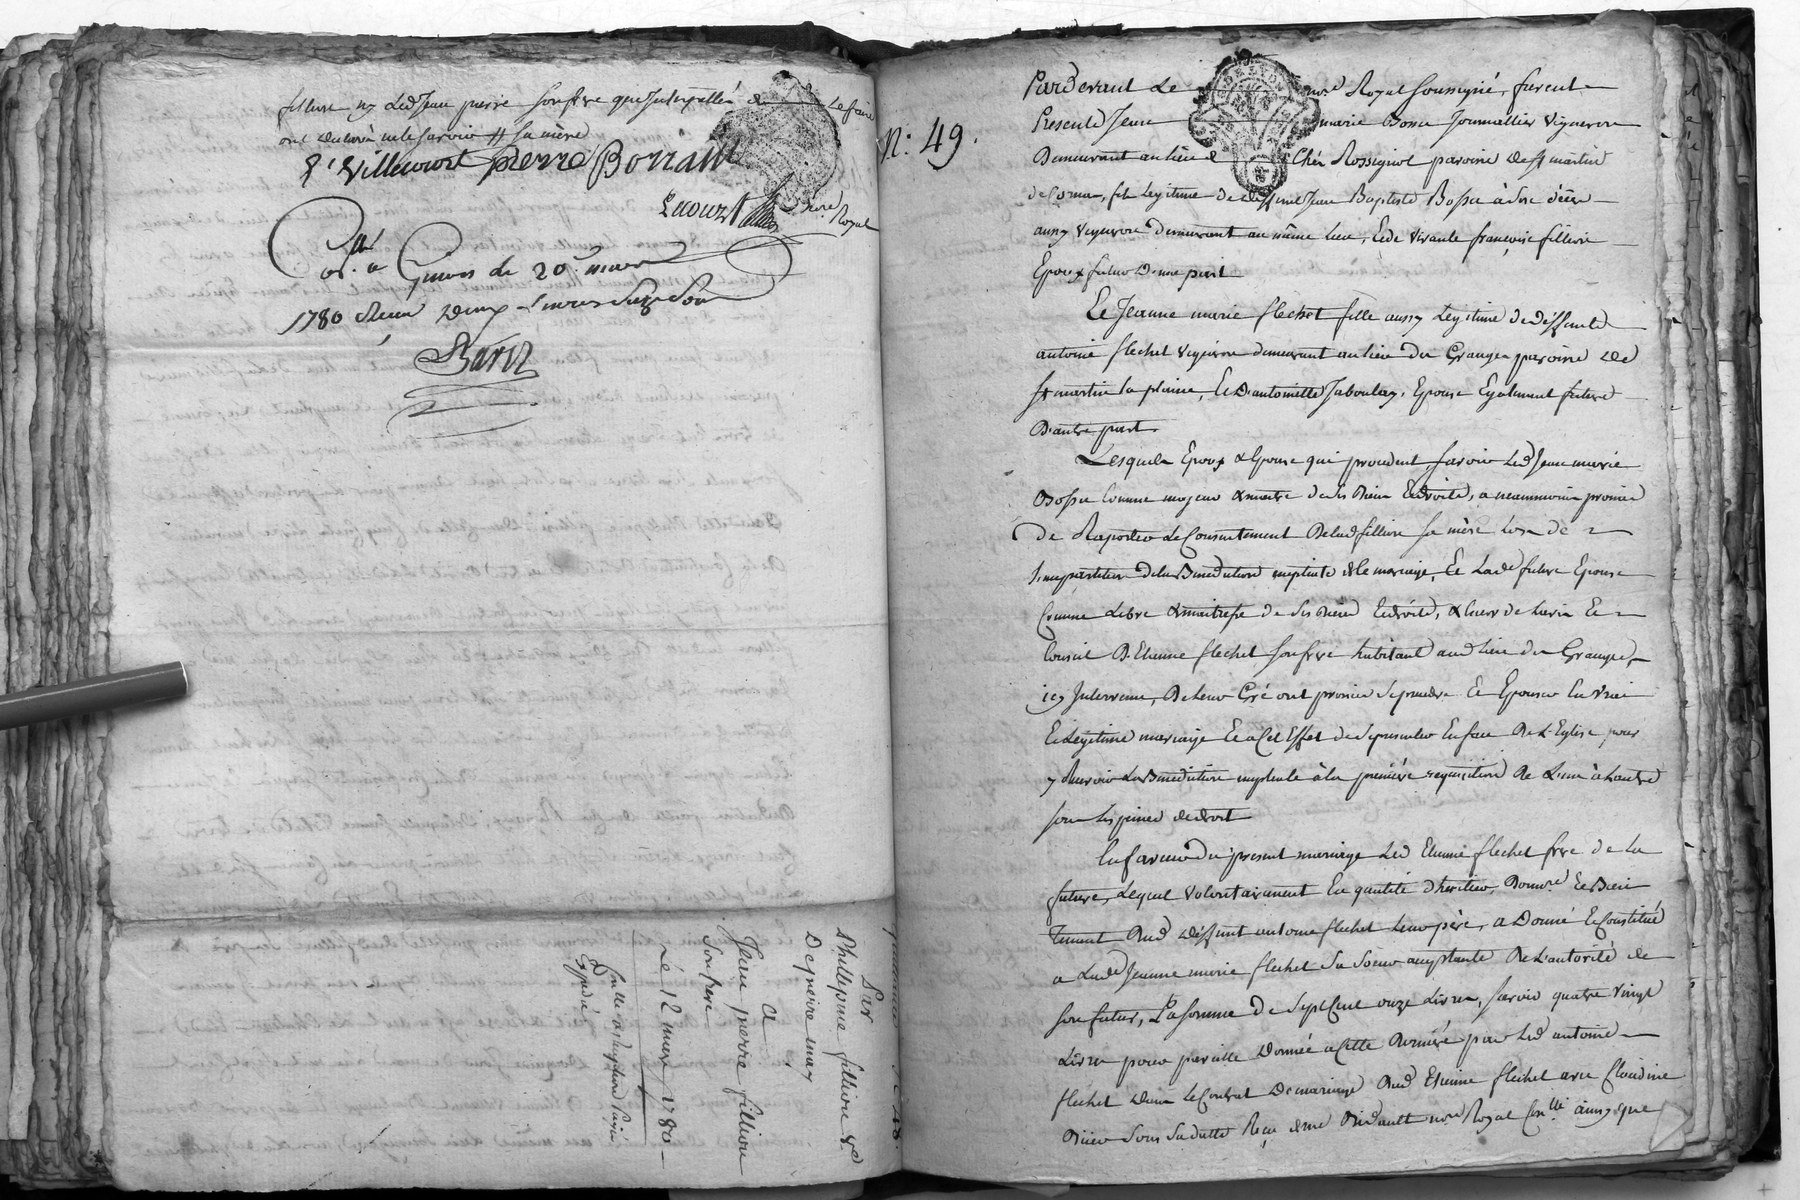 filliou ny Led Jean pierre son frere que Interpellé de Le faire
ont declaré ne le savoir // sa mère
P. Villecourt pierre Borrault
nore Royal
Con.lé a Givors le 20e. mars
1780 Reçu deux livres Seize Sols
Barin
quittance N. 48.
Par
Philipine filliou Ve
Depeire may
a
Jean pierre filliou
son frere
Le 12 mars 1780
Expedié
N: 49.
Pardevant Le nore Royal soussigné, furent
Presents Jean marie Bossu Journallier Vigneron
Demeurant au lieu de Chés Rossignol paroisse de st martin
de Cornas, fils Legitime de deffunt Jean Baptiste Bossu à son décès
aussy Vigneron demeurant au même lieu, & de Vivante françoise filliou
Epoux futur D'une part
Et Jeanne marie flechet fille aussy Légitime de deffunt
antoine flechet Vigneron demeurant au lieu du Grange paroisse de
st martin la plaine, & D'antoinette Jaboulay, Epouse Egalement future
D'autre part.
Lesquels Epoux & Epouse qui procedent savoir Led Jean marie
Bossu Comme majeur & maitre de ses Biens & droits, a neammoins promis
de Raporter Le Consentement De lad filliou sa mère Lors de
L'impartition de la Benediction nuptiale & le mariage, Et Lade future Epouse
Comme Libre & maitresse de ses Biens & droits, & encore de Lavis Et
Conseil D'Etienne flechet son frere habitant aud lieu du Grange,
icy Intervenu, De leur Gré ont promis se prendre Et Epouser En Vrai
& Légitime mariage Et a Cet Effet de se presenter En face De L'Eglise pour
y Recevoir La Benediction nuptiale à la premiére requisition De L'un à Lautre
sous Les peines de droit
En faveur du present mariage Led Etienne flechet frere de la
future, Lequel Volontairement En qualité d'heritier De
Dud deffunt antoine flechet Leur père, a Donné & Constitué
a Lade Jeanne marie flechet sa Soeur acceptante De L'autorité de
son futur, La somme de Sept Cent onze Livres, savoir quatre vingt
Livres pour pareille Donnée a Cette derniére par Led antoine
flechet dans Le Contrat De mariage Dud Etienne flechet avec Claudine
Reçu & me nore Royal ainsy que